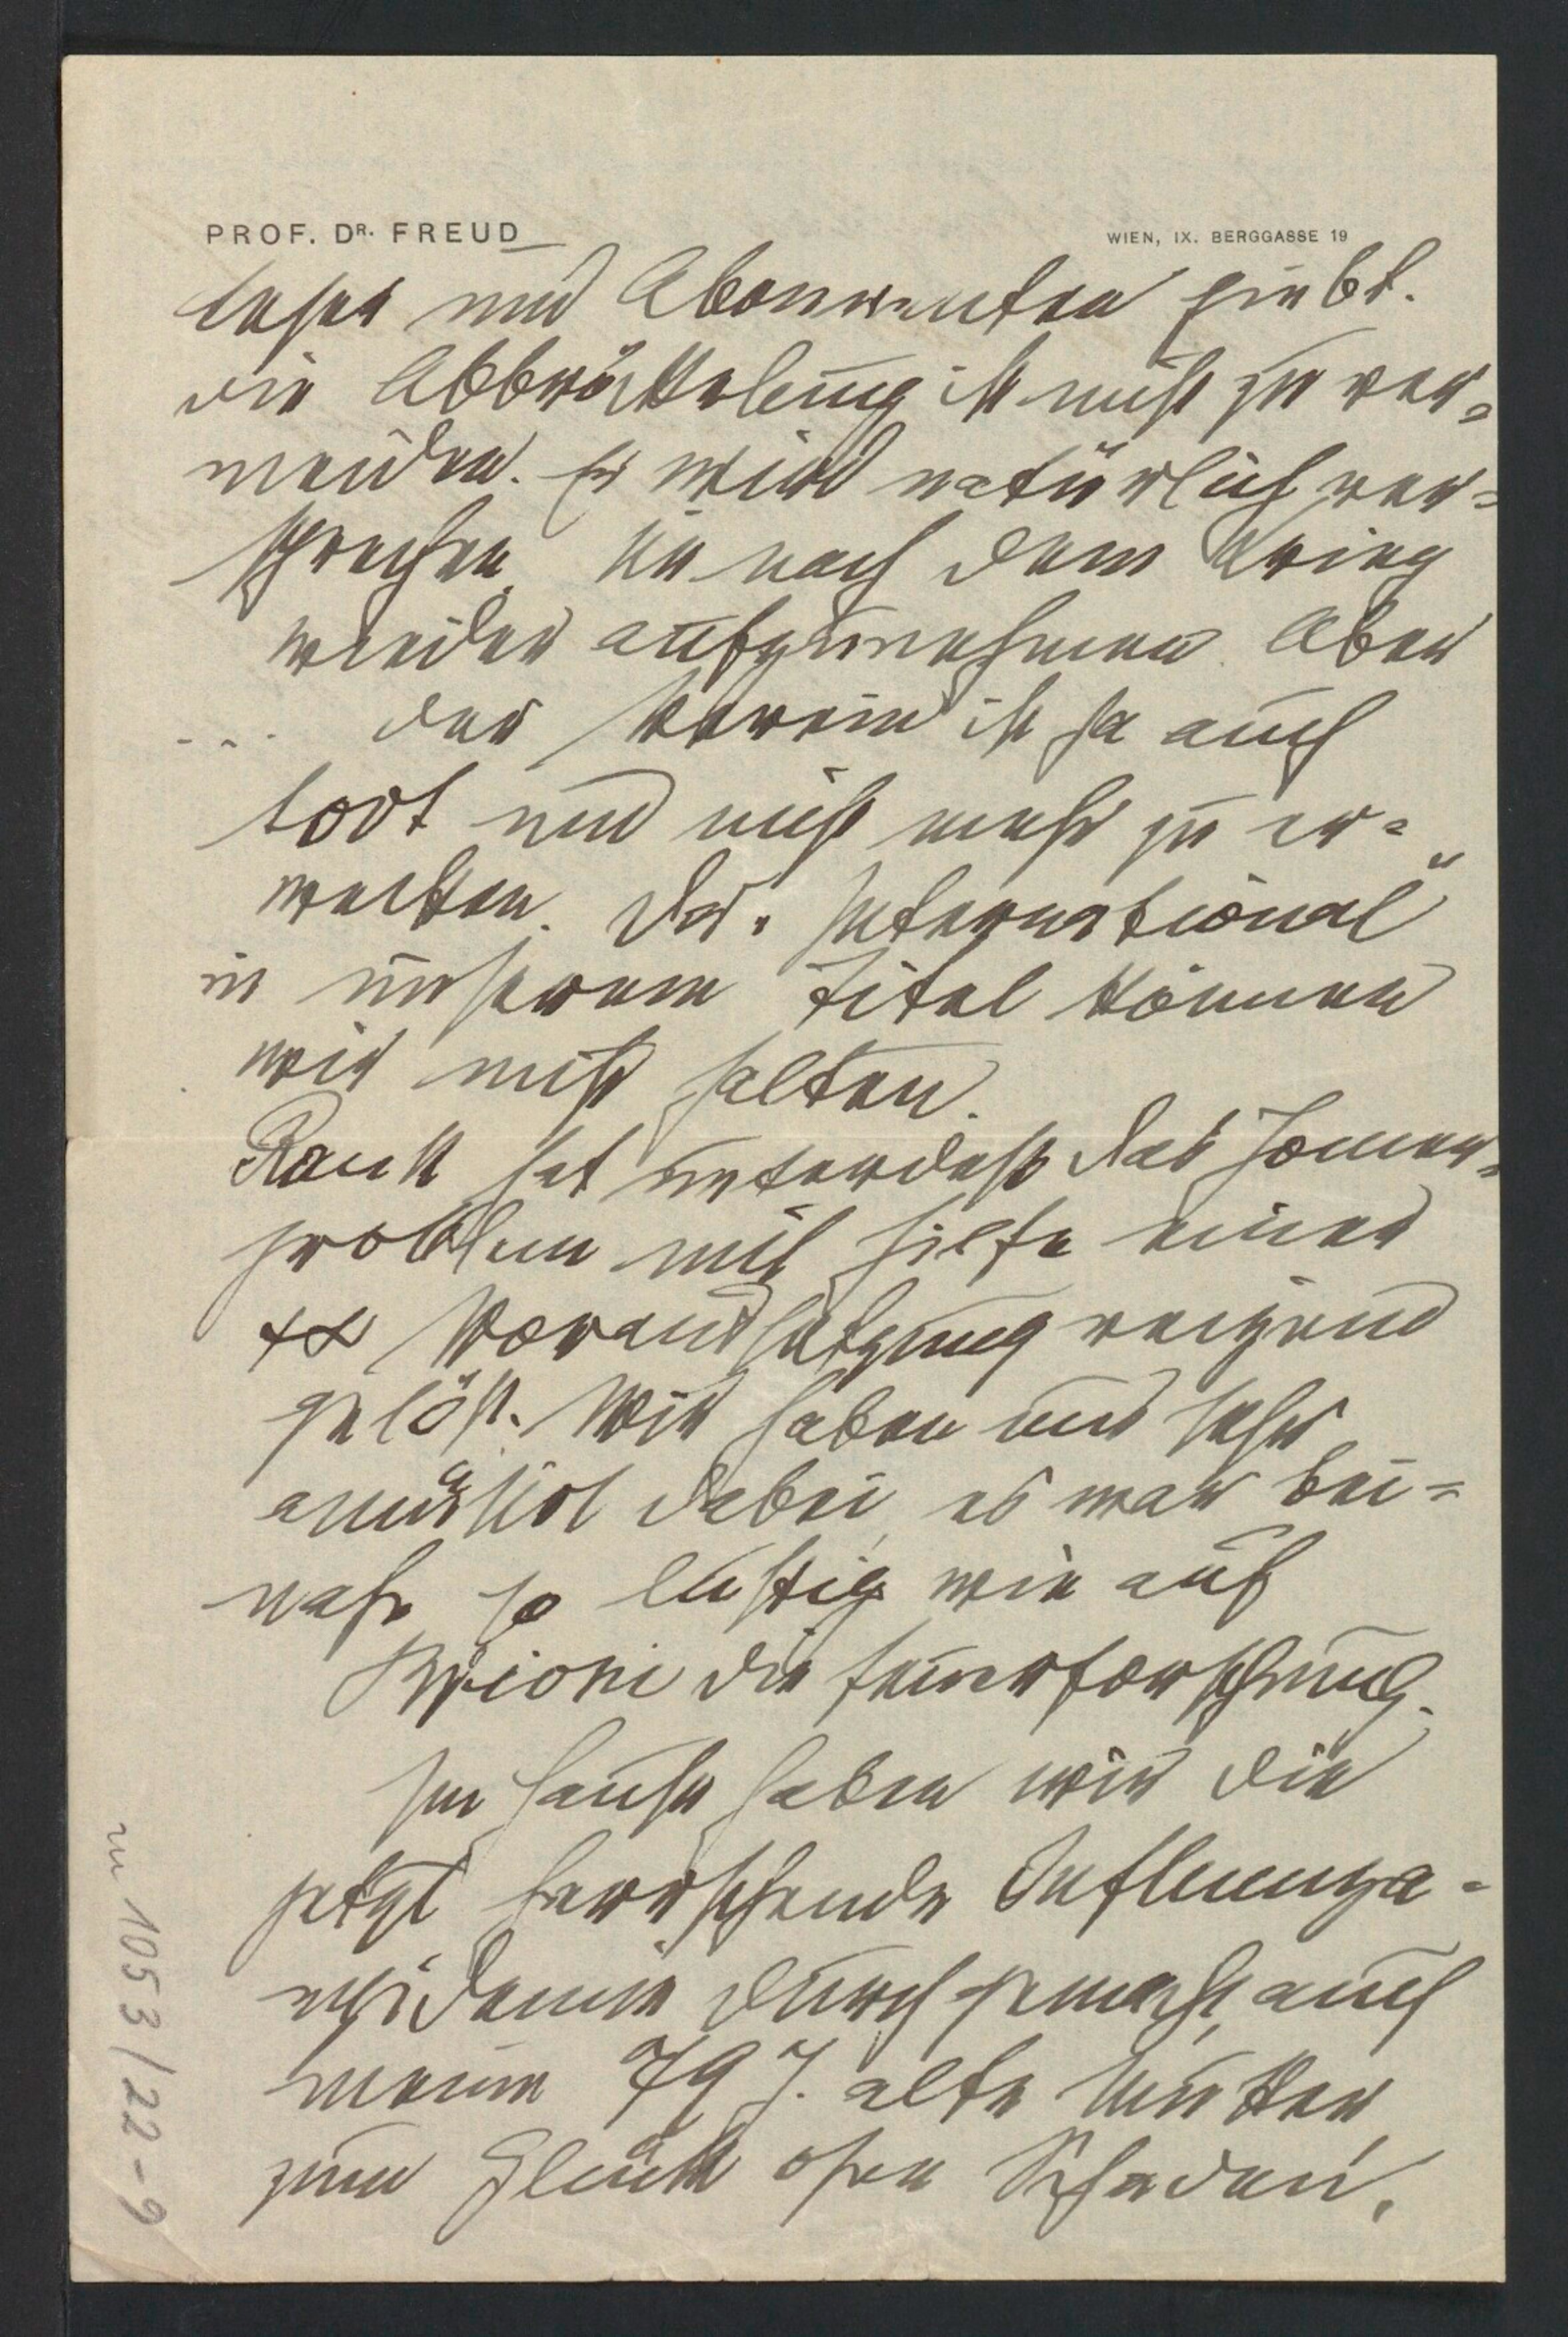 PROF. DR. FREUD WIEN, IX. BERGGASSE 19
Leser und Abonnenten giebt.
Die Abbröckelung ist nicht zu ver=
meiden. Er wird natürlich ver=
sprechen sie nach dem Krieg
wieder aufzunehmen. Aber
... der Verein ist ja auch
todt und nicht mehr zu er=
wecken. Das „International“
in unserem Titel können
wir nicht halten.
Rank hat unterdeß das Homer=
problem mit Hilfe einer
Voraussetzung reizend
gelöst. Wir haben uns sehr
amüsirt dabei, es war bei=
nahe so lustig wie auf
Brioni die
Im Hause haben wir die
jetzt herrschende Influenza-
epidemie durchgemacht, auch
meine 79 J. alte Mutter,
zum Glück ohne Schaden.
zu 1053/22-9